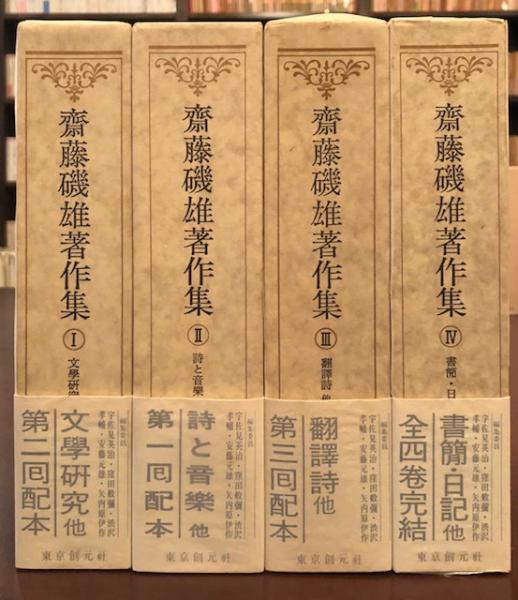 齋藤磯雄著作集
Ⅰ
文學研究
編集委員
宇佐見英治・窪田般彌・渋沢
孝輔・安藤元雄・矢内原伊作
文學研究他
第二回配本
東京創元社
齋藤磯雄著作集
Ⅱ
詩と音樂
編集委員
宇佐見英治・窪田般彌・渋沢
孝輔・安藤元雄・矢内原伊作
詩と音樂他
第一回配本
東京創元社
齋藤磯雄著作集
Ⅲ
翻譯詩他
編集委員
宇佐見英治・窪田般彌・渋沢
孝輔・安藤元雄・矢内原伊作
翻譯詩他
第三回配本
東京創元社
齋藤磯雄著作集
Ⅳ
書簡・日
編集委員
宇佐見英治・窪田般彌・渋沢
孝輔・安藤元雄・矢内原伊作
書簡・日記他
全四卷完結
東京創元社